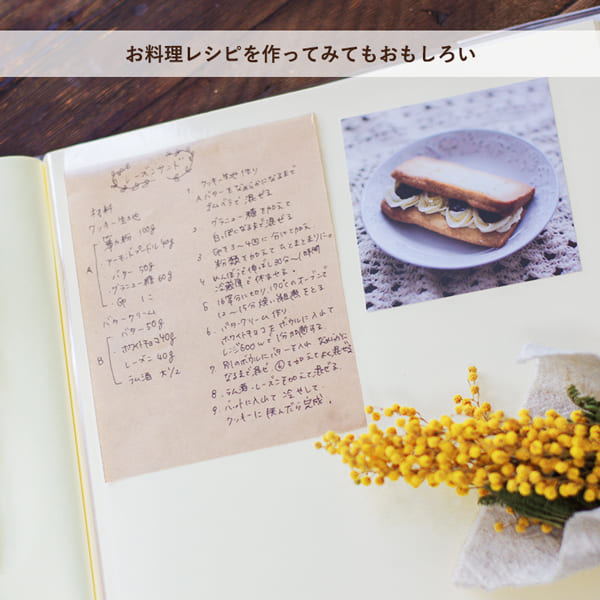 お料理レシピを作ってみてもおもしろい
レーズンサンド
材料
クッキー生地
薄力粉 100g
アーモンドプードル 40g
A
バター 50g
グラニュー糖 60g
卵 1コ
バタークリーム
バター 50g
B
ホワイトチョコ 40g
レーズン 40g
ラム酒 大1/2
1. クッキー生地作り
A バターをなめらかになるまで
ゴムベラで混ぜる
2 グラニュー糖を加えて
白っぽくなるまで混ぜる
3 卵を3〜4回に分けて加え
粉類を加えてひとまとまりに。
4 めんぼうで伸ばし30分〜1時間
冷蔵庫で休ませる。
5 16等分に切り、170℃のオーブンで
12〜15分焼い粗熱をとる
6. バタークリーム作り
ホワイトチョコをボウルに入れて
レンジ600wで1分加熱する
7 別のボウルにバターを入れ なめらかに
なるまで混ぜ ⑥を加えてよく混ぜる
8. ラム酒・レーズンを加えて混ぜる
9. バットに入れて 冷やして
クッキーに挟んだら完成。